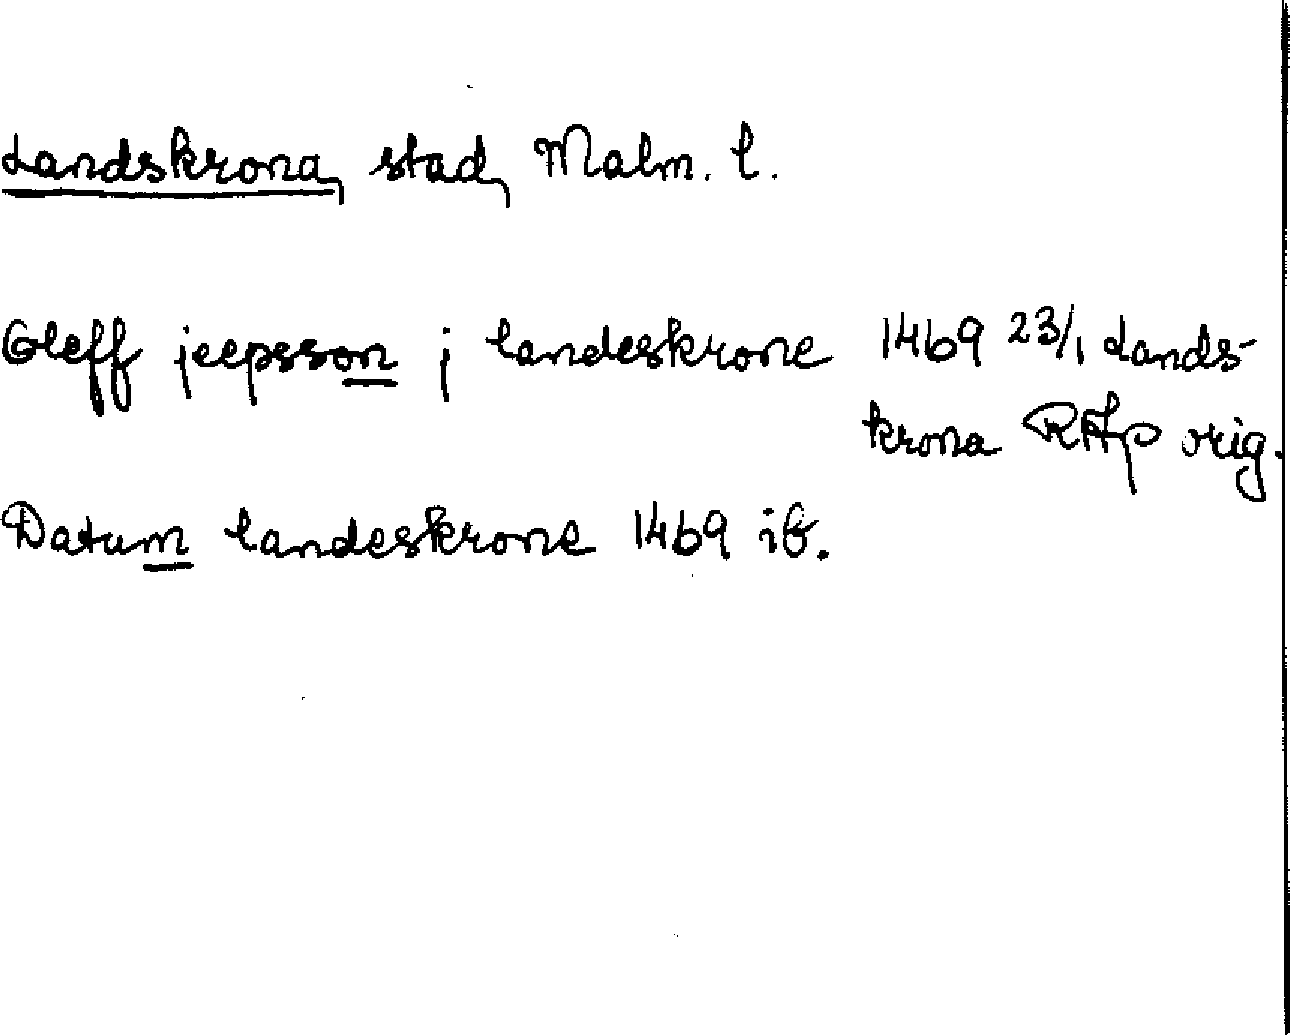 Landskrona, stad, Malm. l.
Oleff jeepsson j landeskrone 1469 23/1 Lands-
krona RAp orig.
Datum landeskrone 1469 ib.